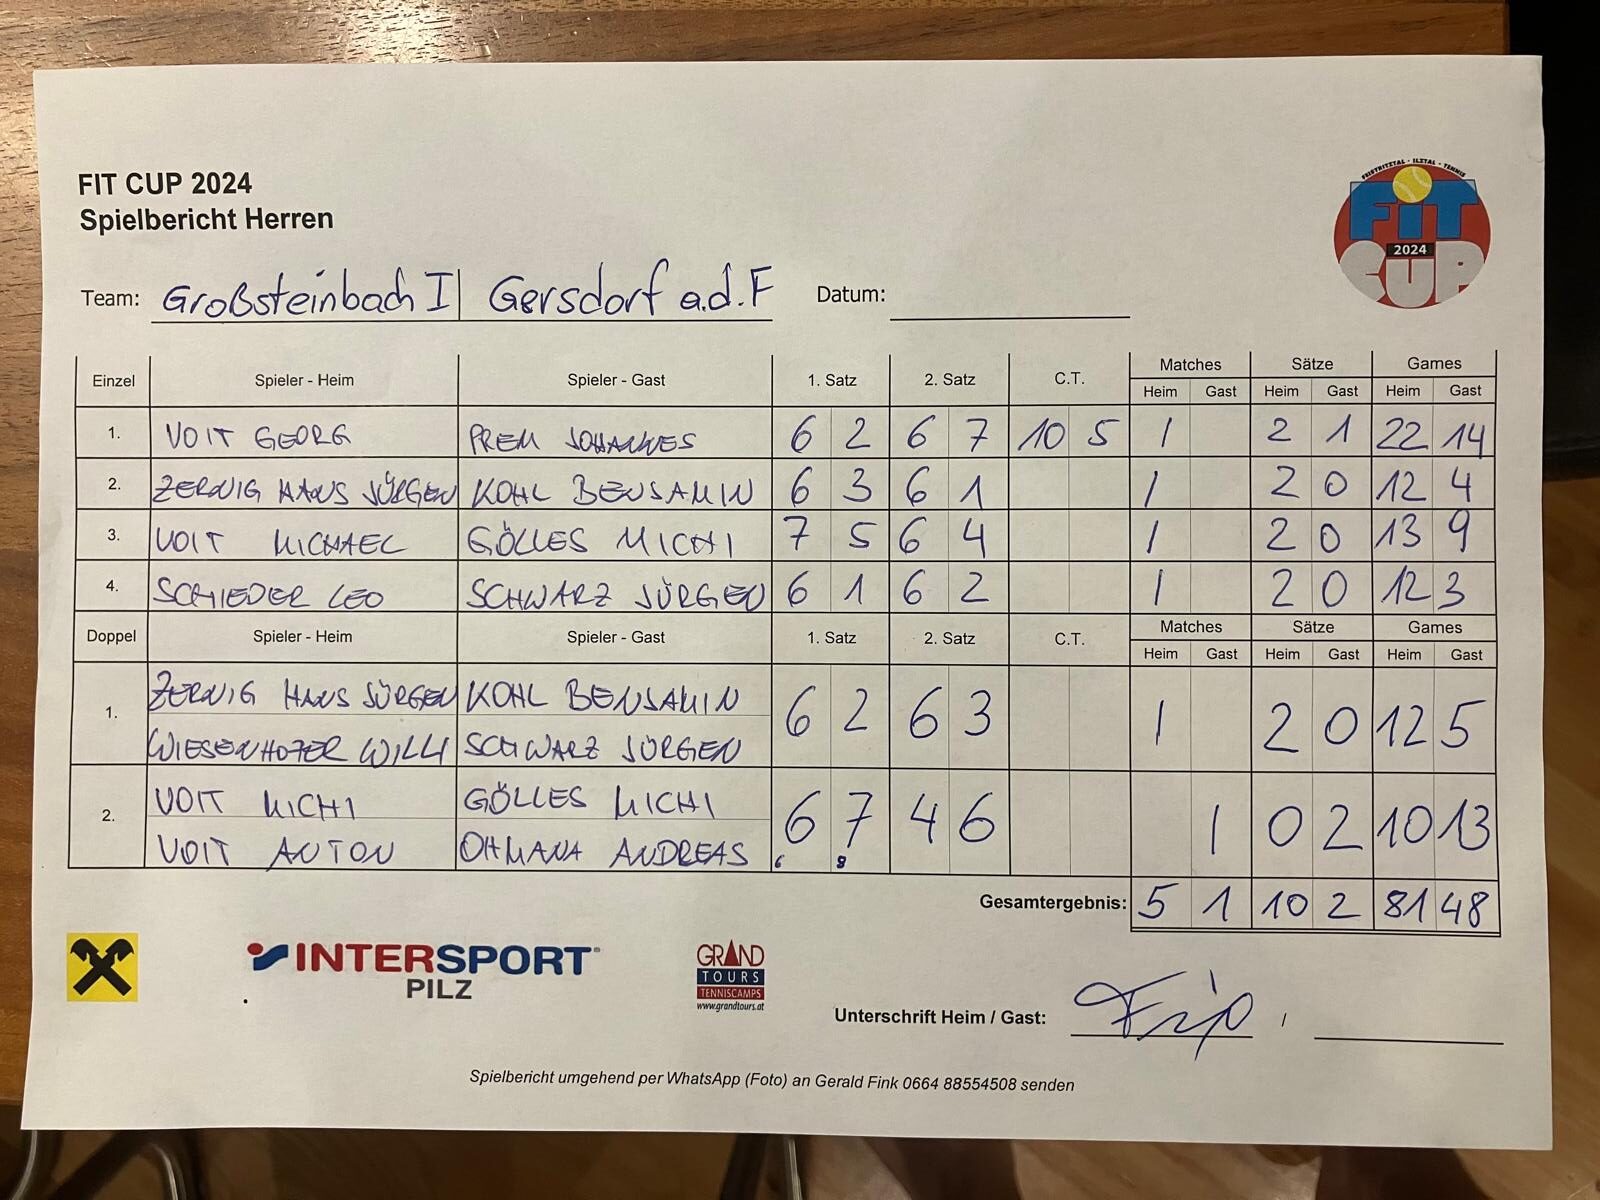 FEISTRITZTAL - ILZTAL - TENNIS
FiT
2024
CUP
FIT CUP 2024
Spielbericht Herren
Team: Großsteinbach I | Gersdorf a.d.F Datum:
Einzel Spieler - Heim Spieler - Gast 1. Satz 2. Satz C.T. Matches Sätze Games
Heim Gast Heim Gast Heim Gast
1. VOIT GEORG PREM JOHANNES 6 2 6 7 10 5 1 2 1 22 14
2. ZERNIG HANS JÜRGEN KOHL BENJAMIN 6 3 6 1 1 2 0 12 4
3. VOIT MICHAEL GÖLLES MICHI 7 5 6 4 1 2 0 13 9
4. SCHIEDER LEO SCHWARZ JÜRGEN 6 1 6 2 1 2 0 12 3
Doppel Spieler - Heim Spieler - Gast 1. Satz 2. Satz C.T. Matches Sätze Games
Heim Gast Heim Gast Heim Gast
ZERNIG HANS JÜRGEN KOHL BENJAMIN
1. 6 2 6 3 1 2 0 12 5
WIESENHOFER WILLI SCHWARZ JÜRGEN
VOIT MICHI GÖLLES MICHI
2. 6 7 4 6 1 0 2 10 13
VOIT ANTON OHMANA ANDREAS 6 8
Gesamtergebnis: 5 1 10 2 81 48
INTERSPORT
PILZ
GRAND
TOURS
TENNISCAMPS
www.grandtours.at
Unterschrift Heim / Gast: /
Spielbericht umgehend per WhatsApp (Foto) an Gerald Fink 0664 88554508 senden